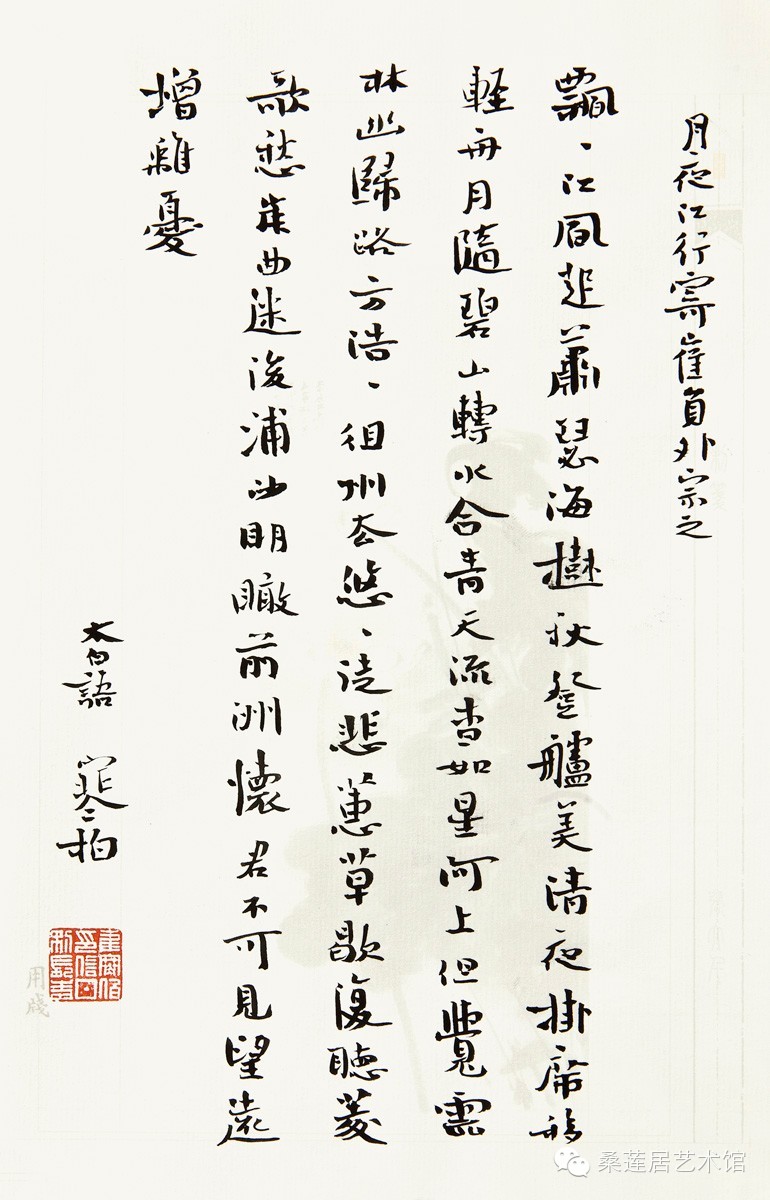 月夜江行寄崔員外宗之
飄、江風起蕭瑟海樹秋登艫美清夜掛席移
輕舟月隨碧山轉水合青天流杳如星河上但覺雲
林幽歸路方浩、徂州去悠、徒悲蕙草歇復聽菱
歌愁岸曲迷後浦沙明瞰前洲懷君不可見望遠
增離憂
太白語 寒柏
用牋
桑莲居艺术馆